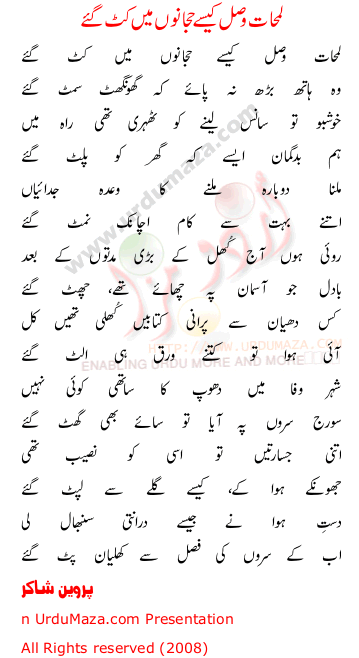 لمحات وصل کیسے حجابوں میں کٹ گئے
لمحات وصل کیسے حجابوں میں کٹ گئے
وہ ہاتھ بڑھ نہ پائے کہ گھونگھٹ سمٹ گئے
خوشبو تو سانس لینے کو ٹھہری تھی راہ میں
ہم بدگمان ایسے کہ گھر کو پلٹ گئے
ملنا دوبارہ ملنے کا وعدہ جدائیاں
اتنے بہت سے کام اچانک نمٹ گئے
روئی ہوں آج کُھل کے بڑی مدتوں کے بعد
بادل جو آسمان پہ چھائے تھے، چھٹ گئے
کس دھیان سے پرانی کتابیں کُھلی تھیں کل
آئی ہوا تو کتنے ورق ہی الٹ گئے
شہر وفا میں دھوپ کا ساتھی کوئی نہیں
سورج سروں پہ آیا تو سائے بھی گھٹ گئے
اتنی جسارتیں تو اسی کو نصیب تھی
جھونکے ہوا کے، کیسے گلے سے لپٹ گئے
دستِ ہوا نے جیسے درانتی سنبھال لی
اب کے سروں کی فصل سے کھلیان پٹ گئے
پروین شاکر
n UrduMaza.com Presentation
All Rights reserved (2008)
www.urdumaza.com
اردو مزا
HTTP://WWW.URDUMAZA.COM
ENABLING URDU MORE AND MORE